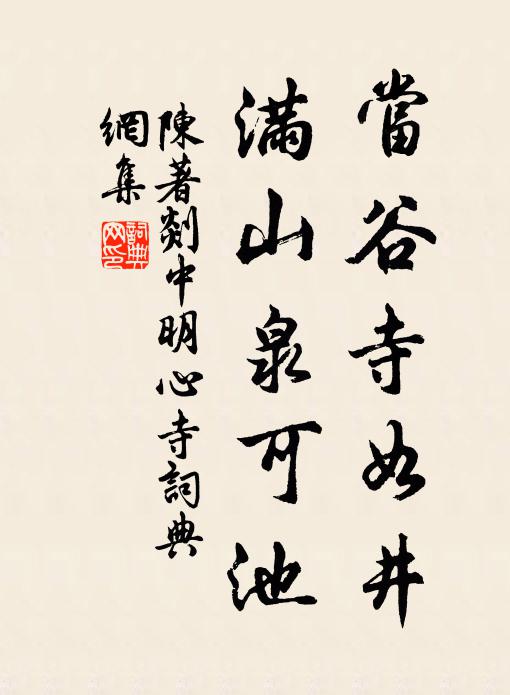 當谷寺如井
滿山泉可池
陳著剡中明心寺詞典
網集
詞典
网印